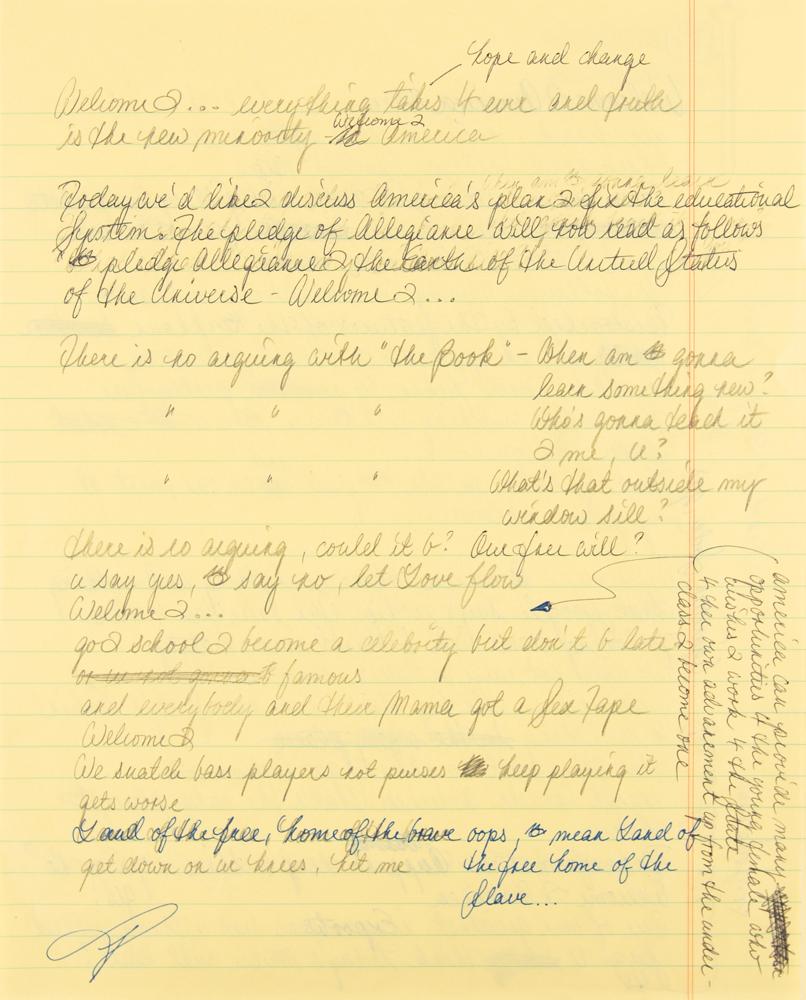 hope and change
Welcome 2... everything takes 4 ever and truth
is the new minority - Welcome 2 America
Today we'd like 2 discuss America's plan 2 fix the educational
System. The pledge of Allegiance will now read as follows
pledge Allegiance 2 the Earth of the United States
of the Universe - Welcome 2...
There is no arguing with "the Book" - When am 👁 gonna
learn something new?
" " " Who's gonna teach it
2 me, U?
" " " What's that outside my
window sill?
there is no arguing, could it b? Our free will?
u say yes, 👁 say no, let Love flow
Welcome 2...
go 2 school 2 become a celebrity but don't b late
or ur not gonna b famous
and everybody and their Mama got a Sex Tape
Welcome 2
We snatch bass players not purses keep playing it
gets worse
Land of the free, home of the brave oops, 👁 mean Land of
the free home of the
slave...
get down on ur knees, hit me
america can provide many
opportunities 4 the young female who
wishes 2 work 4 the State
4 her own advancement up from the under-
class 2 become one